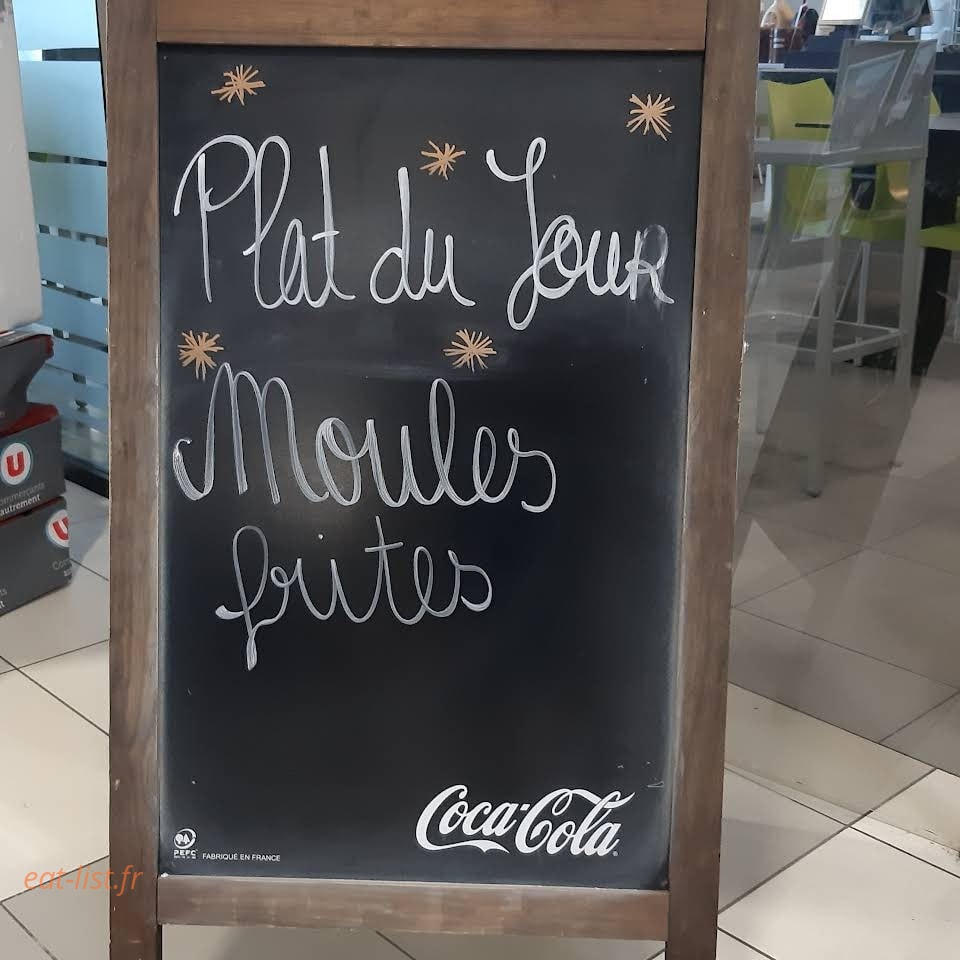 Plat du Jour
Moules
frites
Coca-Cola
PEFC
FABRIQUÉ EN FRANCE
U
commerçants
autrement
U
eat-list.fr